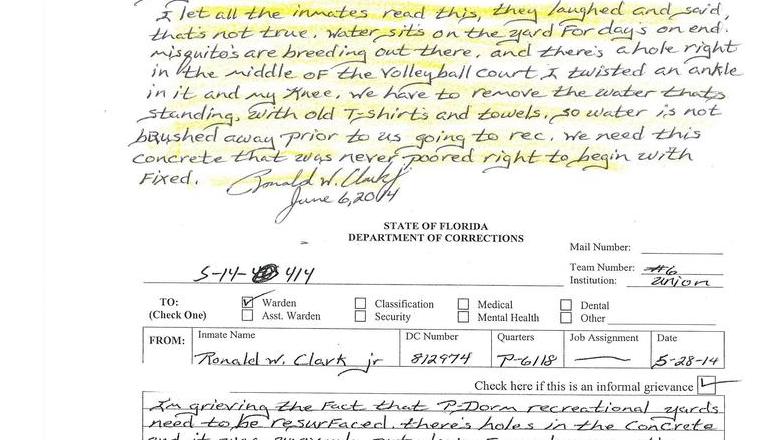 I let all the inmates read this, they laughed and said,
that's not true. Water sits on the yard for day's on end.
misquito's are breeding out there, and there's a hole right
in the middle of the volleyball court I twisted an ankle
in it and my knee. We have to remove the water that's
standing, with old T-shirts and towels, so water is not
brushed away prior to us going to rec. We need this
concrete that was never poored right to begin with
Fixed. Ronald W. Clark Jr
June 6, 2014
STATE OF FLORIDA
DEPARTMENT OF CORRECTIONS
Mail Number:
Team Number: #6
Institution: Union
5-14- 414
TO:
(Check One)
Warden Classification Medical Dental
Asst. Warden Security Mental Health Other
FROM:
Inmate Name DC Number Quarters Job Assignment Date
Ronald W. Clark jr 812974 P-6118 5-28-14
Check here if this is an informal grievance
I'm grieving the Fact that P-Dorm recreational yards
need to be resurfaced. there's holes in the concrete